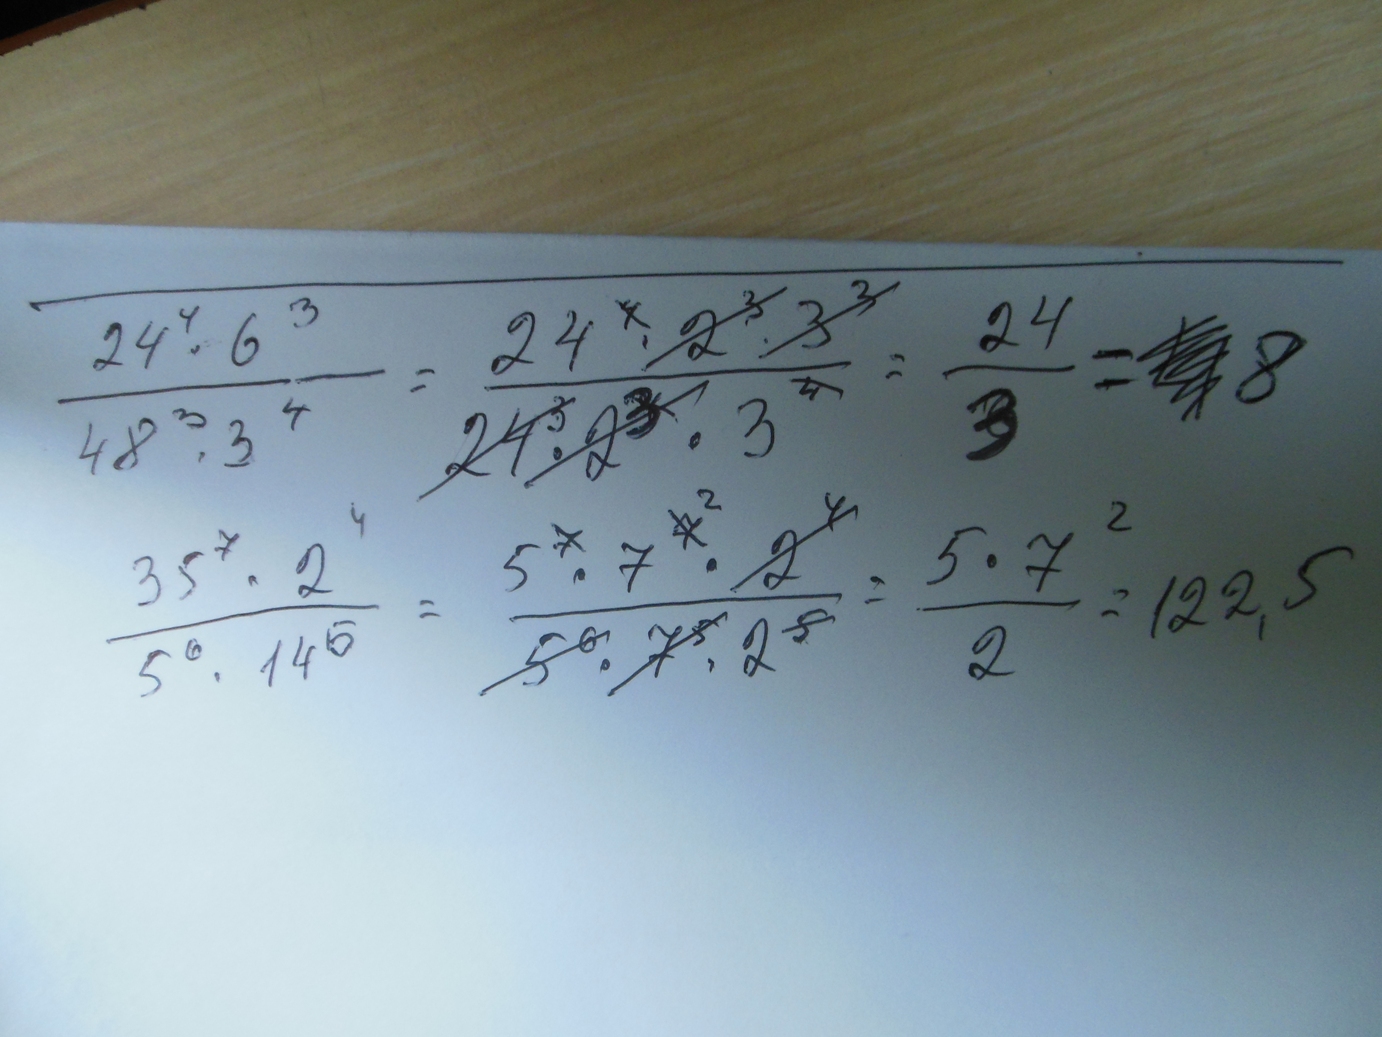 24⁴·6³/48³·3⁴ = 24⁴·2³·3³/24³·2³·3⁴ = 24/3 = 8
35⁷·2⁴/5⁶·14⁵ = 5⁷·7⁷²·2⁴/5⁶·7⁵·2⁵ = 5·7²/2 = 122,5